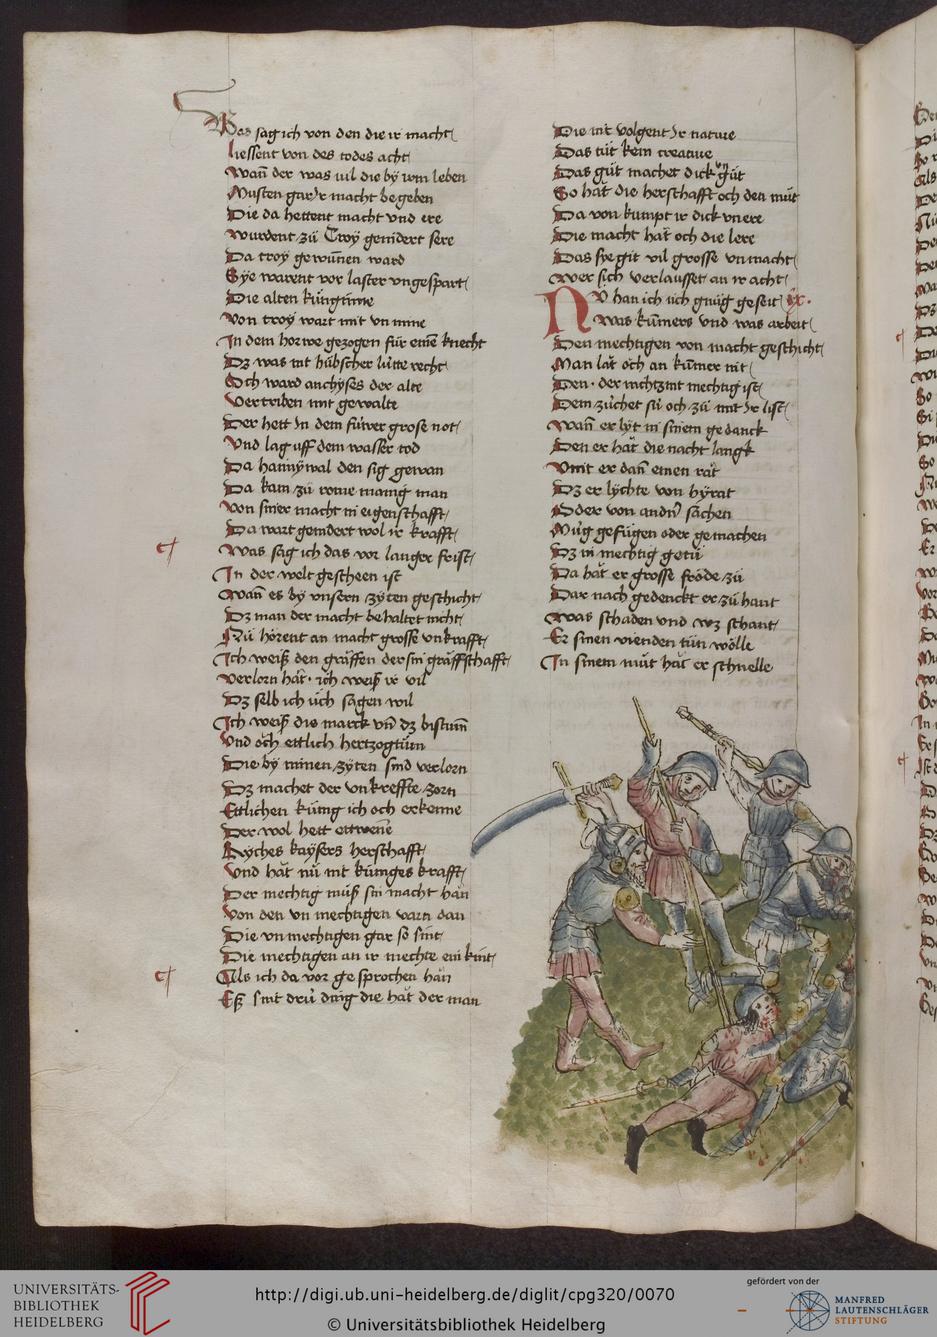 Was sag ich von den die ir macht
liessent von des todes acht
Wan̄ der was uil die by irm leben
Musten gar ir macht begeben
Die da hettent macht vnd ere
Wurdent zü Troy gemidert sere
Da troy gewūnen ward
Sye warent vor laster vngespart
Die alten küngīnne
Von troy wart mit vn mine
In dem horwe gezogen für eine knecht
Dz was mt hübscher lütte recht
Och ward anchyses der alte
Vertriben mit gewalte
Der hett In dem füwer grose not
Vnd lag uff dem wasser tod
Da hannÿwal den sig gewan
Da kam zü rome manig man
Von siner macht in eigenschafft
Da wart gemidert wol ir krafft
Was sag ich das vor langer frist
In der welt gescheen ist
Wan̄ es by vnsern zÿten geschicht
Dz man der macht behaltet nicht
Nü hörent an macht grosse vnkrafft
Ich weiß den gräffen der sin gräffschafft
Verlorn hät · ich weiß ir vil
Dz selb ich üch sagen wil
Ich weiß die marck vn̄ dz bistum̄
Vnd öch ettlich hertzogtüm
Die by minen zÿten sind verlorn
Dz machet der vnkreffte zorn
Ettlichen küng ich och erkenne
Der wol hett ettwene
Ryches kaysers herschafft
Vnd hät nü mt künges krafft
Der mechtig müß sin macht hän
Von den vn mechtigen varn dan
Die vn mechtigen gar so sint
Die mechtigen an ir mechte ein kint
Als ich da vor gesprochen hän
Eß sint drü ding die hät der man
Die mt volgent Ir nature
Das tüt kein creature
Das güt machet dick güt
So hät die herschafft och den müt
Da von kumpt ir dick vnere
Die macht hät och die lere
Das sye git vil grosse vnmacht
Wer sich verlausset an ir acht
NV han ich üch gnüg geseit ix.
Was kūmers vnd was arbeit
Den mechtigen von macht geschicht
Man lät öch an kūmer nit
Den · der nicht zmt mechtig ist
Dem züchet sü och zü mit Ir list
Wan̄ er lÿt in sinem gedanck
Den er hät die nacht langk
Vmit er dan̄ einen rät
Dz er lÿchte von hÿrat
Oder von andn̄ sachen
Müg gefügen oder gemachen
Dz in mechtig getü
Da hät er grosse fröde zü
Dar nach gedenckt er zü hant
Was schaden vnd wz schant
Er sinen vienden tün wölle
In sinem müt hät er schnelle
UNIVERSITÄTS-
BIBLIOTHEK
HEIDELBERG
http://digi.ub.uni-heidelberg.de/diglit/cpg320/0070
© Universitätsbibliothek Heidelberg
gefördert von der
MANFRED
LAUTENSCHLÄGER
STIFTUNG